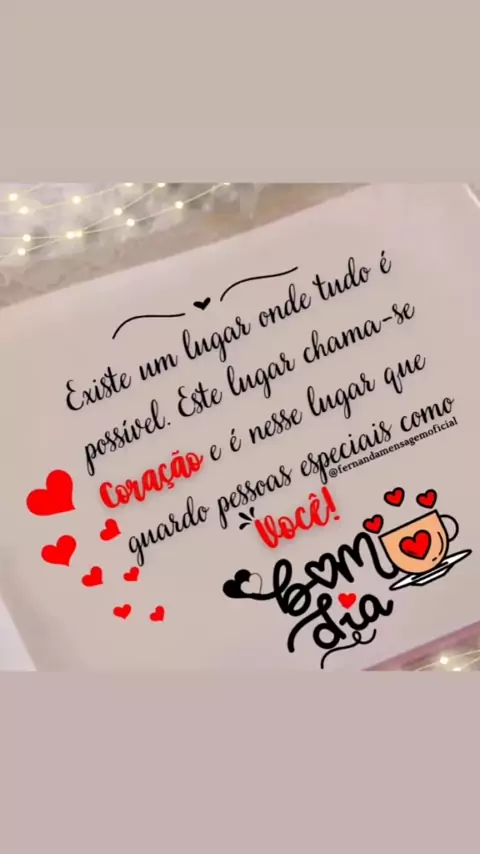 Existe um lugar onde tudo é
possível. Este lugar chama-se
Coração e é nesse lugar que
guardo pessoas especiais como
@fernandamensagemoficial
Você!
bom
dia